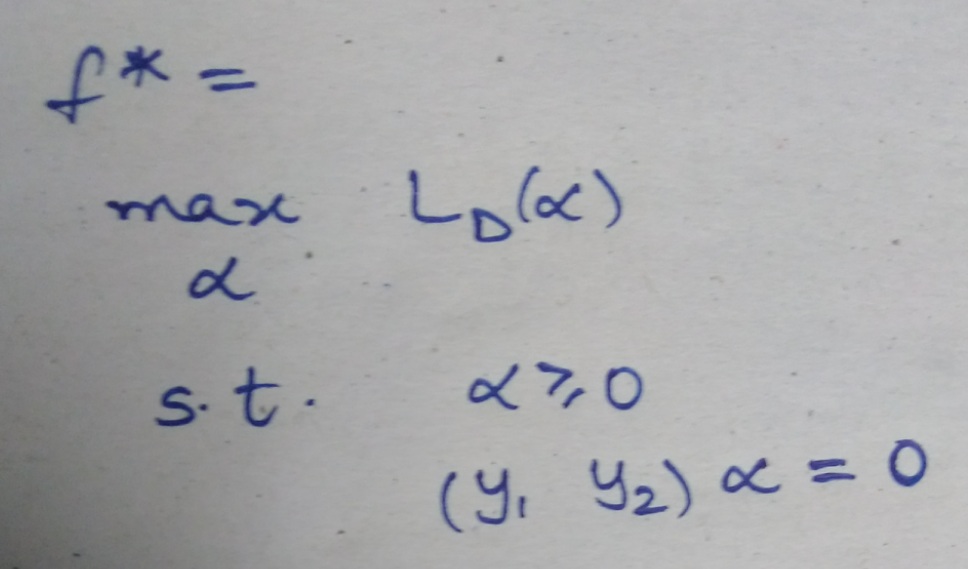 f* =
max L_D(α)
α
s.t. α ≥ 0
(y₁ y₂) α = 0